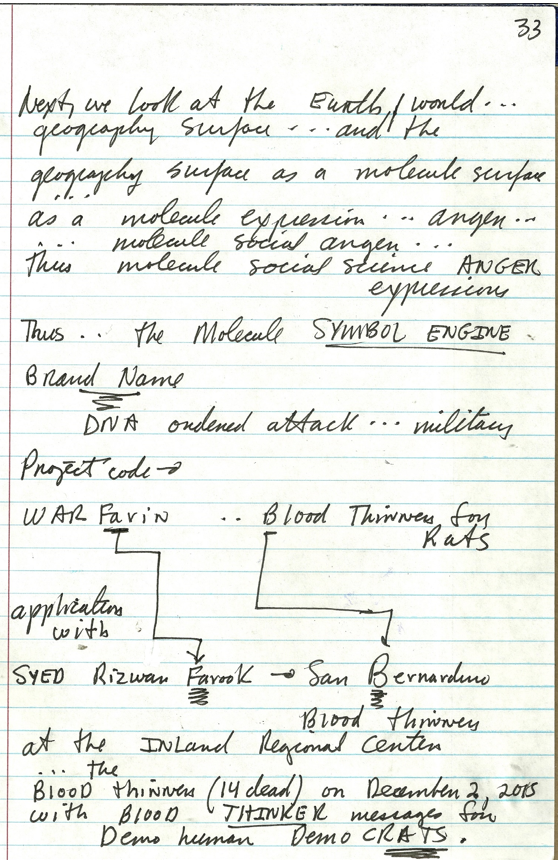 33
Next, we look at the Earth/world...
geography surface .... and the
geography surface as a molecule surface
as a molecule expression ... anger ..
.... molecule social anger ...
thus molecule social science ANGER
expressions
Thus .. the Molecule SYMBOL ENGINE
Brand Name
DNA ordered attack ... military
Project code →
WAR Farin .. Blood Thinners for
Rats
application
with
SYED Rizwan Farook → San Bernardino
Blood thinners
at the INLand Regional Center
... the
Blood thinners (14 dead) on December 2, 2015
with Blood THINKER messages for
Demo human Demo CRATS.